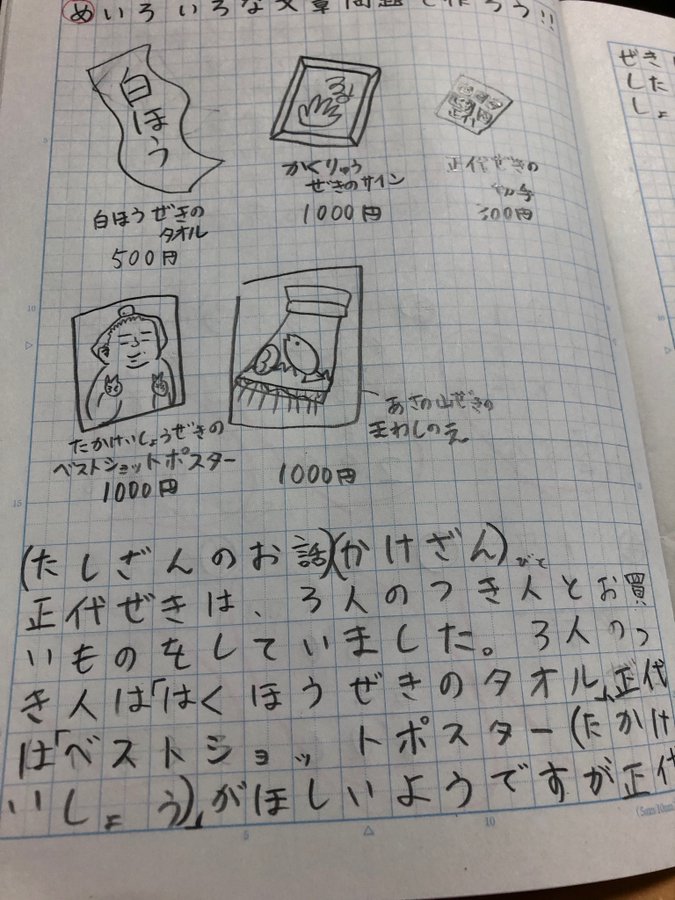 めいろいろな文章問題で作ろう!!
白ほう
白ほうぜきの
タオル
500円
かくりゅう
ぜきのサイン
1000円
正代ぜきの
切手
300円
たかけいしょうぜきの
ベストショットポスター
1000円
あさの山ぜきの
まわしのえ
1000円
(たしざんのお話)(かけざん)
正代ぜきは、3人のつき人とお買
いものをしていました。3人のつ
き人は「はくほうぜきのタオル」正代
は「ベストショットポスター(たかけ
いしょう)」がほしいようですが正代
ぜき
した
しょ